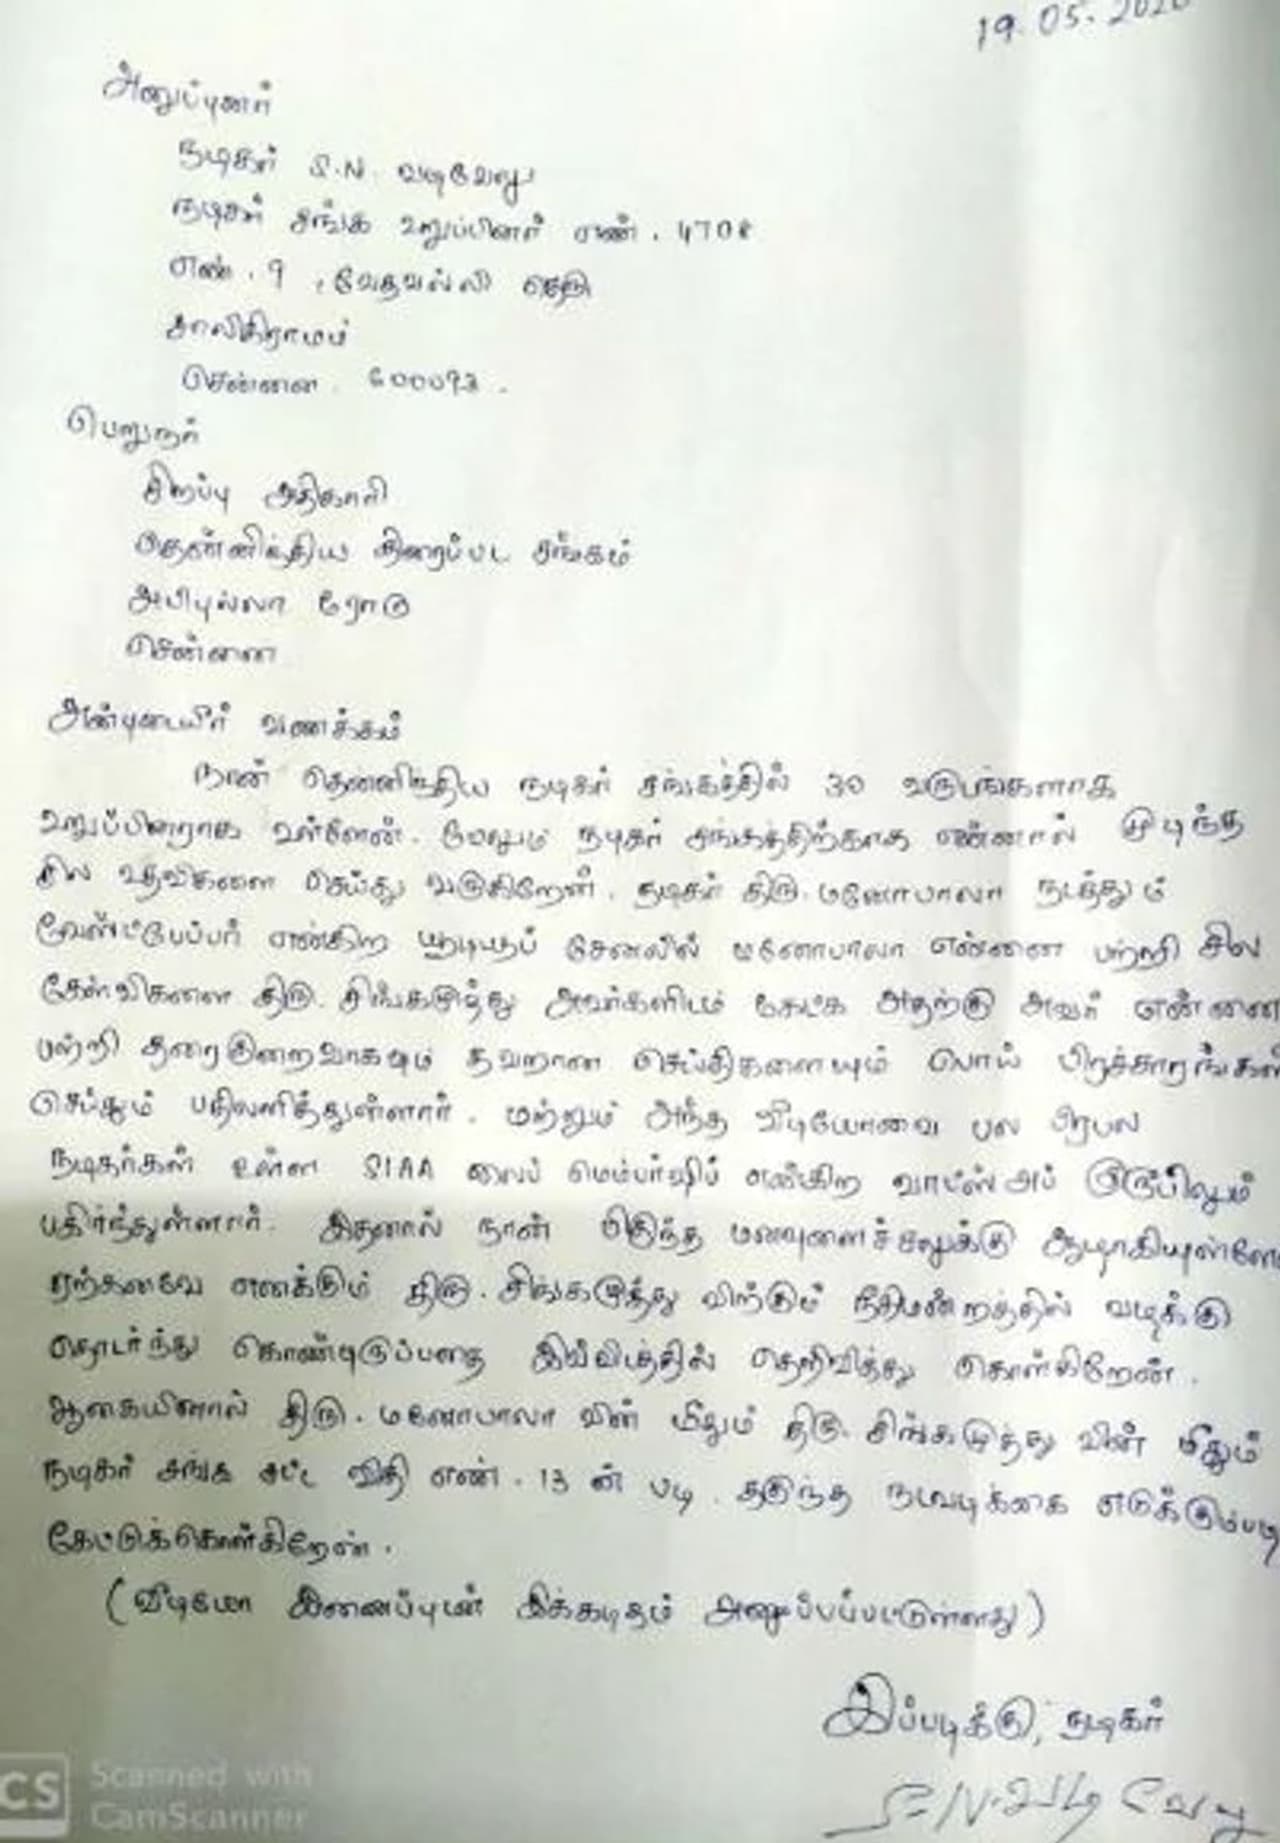 19.05.2020
அனுப்புனர்
நடிகர் S.N. வடிவேலு
நடிகர் சங்க உறுப்பினர் எண். 4708
எண். 9, வேதவல்லி தெரு
சாலிகிராமம்
சென்னை. 600093.
பெறுநர்
சிறப்பு அதிகாரி
தென்னிந்திய திரைப்பட சங்கம்
அபிபுல்லா ரோடு
சென்னை
அன்புடையீர் வணக்கம்
நான் தென்னிந்திய நடிகர் சங்கத்தில் 30 வருடங்களாக
உறுப்பினராக உள்ளேன். மேலும் நடிகர் சங்கத்திற்காக என்னால் முடிந்த
சில உதவிகளை செய்து வருகிறேன். நடிகர் திரு. மனோபாலா நடத்தும்
வேஸ்ட்பேப்பர் என்கிற யூடியூப் சேனலில் மனோபாலா என்னை பற்றி சில
கேள்விகளை திரு. சிங்கமுத்து அவர்களிடம் கேட்க அதற்கு அவர் என்னை
பற்றி தரைகுறைவாகவும் தவறான செய்திகளையும் பொய் பிரச்சாரங்கள்
செய்தும் பதிலளித்துள்ளார். மற்றும் அந்த வீடியோவை பல பிரபல
நடிகர்கள் உள்ள SIAA லைப் மெம்பர்ஷிப் என்கிற வாட்ஸ் அப் குரூப்பிலும்
பகிர்ந்துள்ளார். இதனால் நான் மிகுந்த மனவுளைச்சலுக்கு ஆளாகியுள்ளேன்
ஏற்கனவே எனக்கும் திரு. சிங்கமுத்து விற்கும் நீதிமன்றத்தில் வழக்கு
தொடர்ந்து கொண்டிருப்பதை இவ்விடத்தில் தெரிவித்து கொள்கிறேன்.
ஆகையினால் திரு. மனோபாலா வின் மீதும் திரு. சிங்கமுத்து வின் மீதும்
நடிகர் சங்க சட்ட விதி எண். 13 ன் படி. தகுந்த நடவடிக்கை எடுக்கும்படி
கேட்டுக்கொள்கிறேன்.
(வீடியோ இணைப்புடன் இக்கடிதம் அனுப்பப்பட்டுள்ளது)
இப்படிக்கு, நடிகர்
S.N. வடிவேலு
CS Scanned with
CamScanner